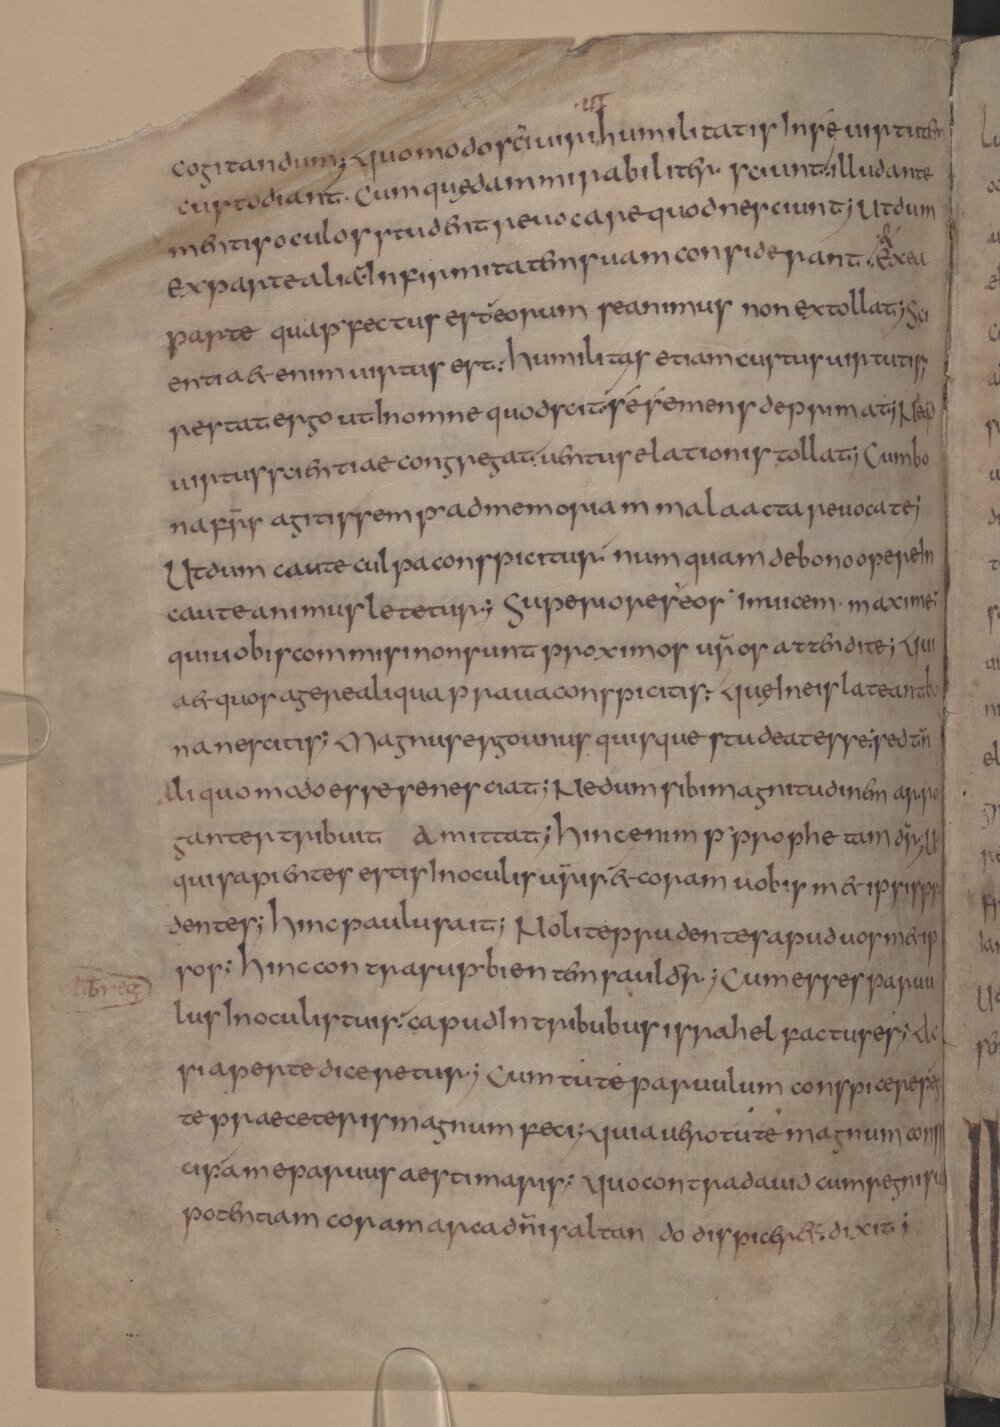 cogitandum; Quomodo sc̄i uiri humilitatis In sé uirtutem
ut
custodiant. Cum quędam mirabiliter sciunt. illud ante
mentis oculos student reuocare quod nesciunt; Ut dum
ex parte alia Infirmitatem suam considerant. & Ex ea
parte qua p̱fectus est eorum se animus non extollat; Sci
entia & enim uirtus est. humilitas etiam custus uirtutis;
restat ergo ut In omne quod scit sé sé mens deprimat; Ne qd
uirtus scientiae congregat. uentus elationis tollat; Cum bo
na fr̄s agitis semp̱ ad memoriam mala acta reuocate;
Ut dum caute culpa conspicitur. numquam de bono opere In
caute animus letetur; Superiores eos inuicem. maxime
qui uobis commisi non sunt proximos ur̄os attendite; Qui
a & quos agere aliqua praua conspicitis; Quę In eis lateant bo
na nescitis; Magnus ergo unus quisque studeat esse. sed tm̄
aliquo modo esse se nesciat; Ne dum sibi magnitudinem arro
ganter tribuit amittat; hinc enim p̱ prophetam dr̄; Ue
qui sapientes estis In oculis ur̄is. & coram uobis m&ipsis pru
dentes; hinc paulus ait; Nolite prudentes apud uosm&ip
sos; hinc contra sup̱bientem saul dr̄; Cum esses paruu
libreg
lus In oculis tuis. capud In tribubus israhel factus es; Ac
si aperte diceretur; Cum tú té paruulum conspiceres. ego
te prae ceteris magnum feci; Quia uero tú té magnum cons
cipis a me paruus aestimaris; Quo contra dauid cum regni sui
potentiam coram arca dn̄i saltando dispiceret. dixit;